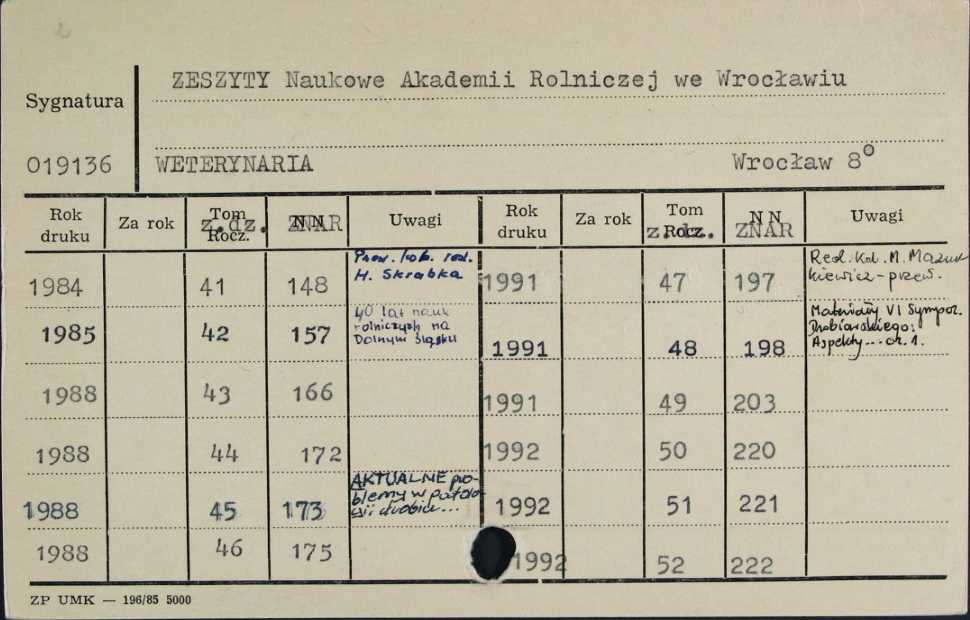 2
ZESZYTY Naukowe Akademii Rolniczej we Wrocławiu
Sygnatura
019136 WETERYNARIA Wrocław 8°
Rok druku Za rok Tom z.dz. Rocz. NN ZNAR Uwagi Rok druku Za rok Tom z.dz. Rocz. NN ZNAR Uwagi
1984 41 148 Przew. kob. red. H. Skrabka 1991 47 197 Red. Kol. M. Mazurkiewicz - przew.
1985 42 157 40 lat nauk rolniczych na Dolnym Śląsku 1991 48 198 Materiały VI Sympoz. Drobiarskiego: Aspekty... cz. 1.
1988 43 166 1991 49 203
1988 44 172 1992 50 220
1988 45 173 AKTUALNE problemy w patologii drobiu... 1992 51 221
1988 46 175 1992 52 222
ZP UMK — 196/85 5000